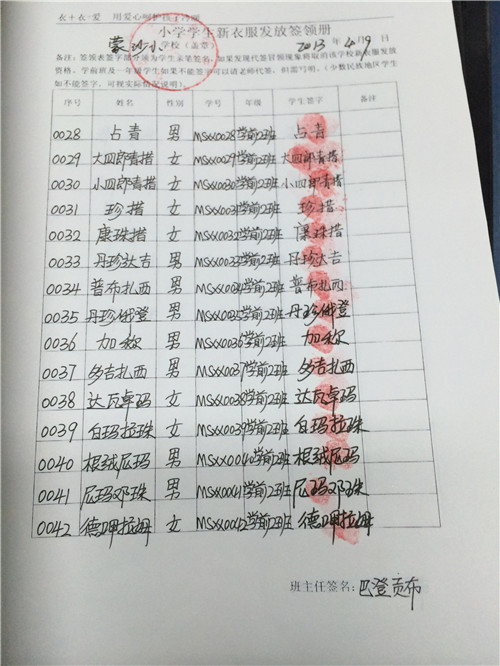 衣+衣=爱 用爱心呵护孩子冷暖
小学学生新衣服发放签领册
蒙沙小 学校（盖章） 2013 年 4月19日
备注：签领表签字部分须为学生亲笔签名，如果发现代签冒领现象将取消该学校新衣服发放
资格。学前班及一年级学生如果不能签字可以请老师代签，但需写明。（少数民族地区学生
如不能签字，可视实际情况说明）
序号 姓名 性别 学号 年级 学生签字 备注
0028 占青 男 MSXX0028 学前2班 占青
0029 大四郎青措 女 MSXX0029 学前2班 大四郎青措
0030 小四郎青措 女 MSXX0030 学前2班 小四郎青措
0031 珍措 女 MSXX0031 学前2班 珍措
0032 康珠措 女 MSXX0032 学前2班 康珠措
0033 丹珍达吉 男 MSXX0033 学前2班 丹珍达吉
0034 普布扎西 男 MSXX0034 学前2班 普布扎西
0035 丹珍俄登 男 MSXX0035 学前2班 丹珍俄登
0036 加称 男 MSXX0036 学前2班 加称
0037 多吉扎西 男 MSXX0037 学前2班 多吉扎西
0038 达瓦卓玛 女 MSXX0038 学前2班 达瓦卓玛
0039 白玛拉珠 女 MSXX0039 学前2班 白玛拉珠
0040 根绒尼玛 男 MSXX0040 学前2班 根绒尼玛
0041 尼玛邓珠 男 MSXX0041 学前2班 尼玛邓珠
0042 德呷拉姆 女 MSXX0042 学前2班 德呷拉姆
班主任签名：巴登贡布